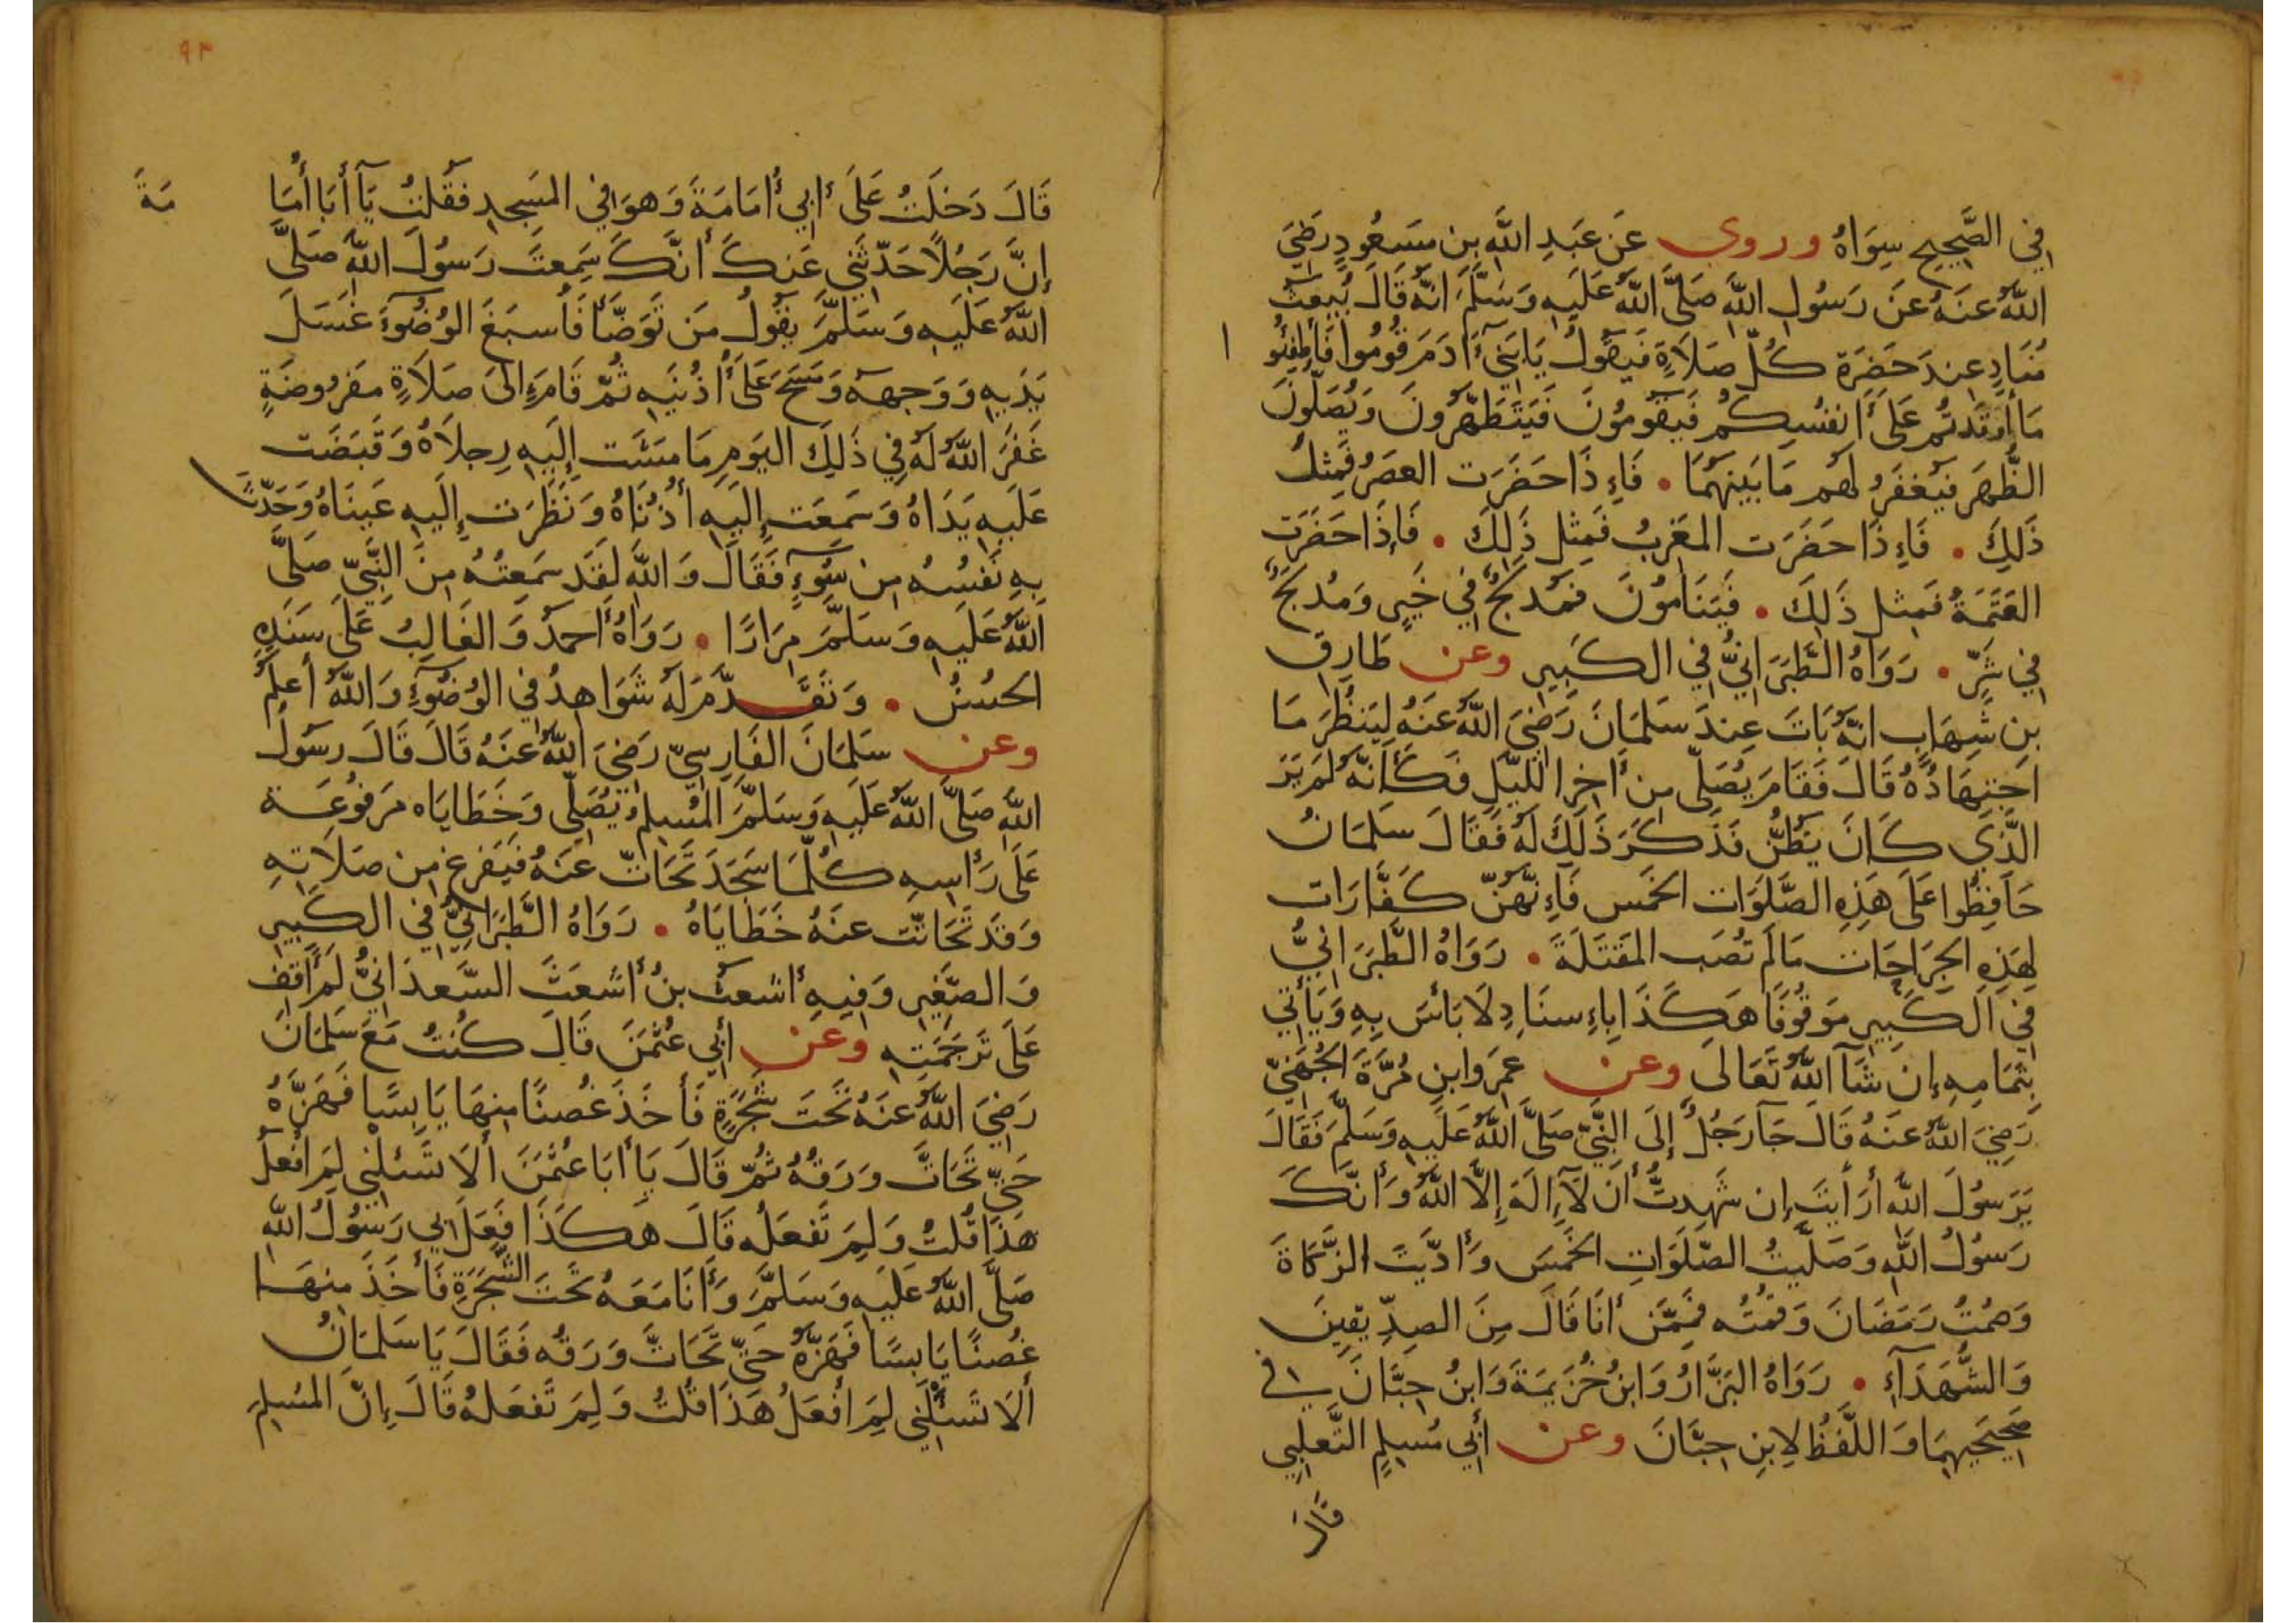 في الصَّحِيحِ سِوَاهُ وروي عَن عَبدِ اللَّهِ بنِ مَسعُودٍ رَضِيَ
اللَّهُ عَنهُ عَن رَسُولِ اللَّهِ صَلَّى اللَّهُ عَلَيهِ وَسَلَّمَ انَّهُ قَالَ يُبعَثُ
مُنَادٍ عِندَ حَضرَةِ كُلِّ صَلَاةٍ فَيَقُولُ يَا بَنِي ءَادَمَ قُومُوا فَأَطفِئُوا
مَا أَوقَدتُم عَلَى أَنفُسِكُم فَيَقُومُونَ فَيَتَطَهَّرُونَ وَيُصَلُّونَ
الظُّهرَ فَيُغفَرُ لَهُم مَا بَينَهُمَا • فَإِذَا حَضَرَت العَصرُ فَمِثلُ
ذَلِكَ • فَإِذَا حَضَرَت المَغرِبُ فَمِثلُ ذَلِكَ • فَإِذَا حَضَرَتِ
العَتَمَةُ فَمِثلُ ذَلِكَ • فَيَنَامُونَ فَمُدلِجٌ فِي خَيرٍ وَمُدلِجٌ
فِي شَرٍّ • رَوَاهُ الطَّبَرَانِيُّ فِي الكَبِيرِ وعن طَارِقِ
بنِ شِهَابٍ انَّهُ بَاتَ عِندَ سَلمَانَ رَضِيَ اللَّهُ عَنهُ لِيَنظُرَ مَا
اجتِهَادُهُ قَالَ فَقَامَ يُصَلِّى مِن أَخِرِ اللَّيلِ فَكَأَنَّهُ لَم يَرَ
الَّذِي كَانَ يَظُنُّ فَذَكَرَ ذَلِكَ لَهُ فَقَالَ سَلمَانُ
حَافِظُوا عَلَى هَذِهِ الصَّلَوَات الخَمسِ فَإِنَّهُنَّ كَفَّارَات
لِهَذِهِ الجِرَاحَات مَا لَم تُصَب المَقتَلَةَ • رَوَاهُ الطَّبَرَانِيُّ
فِي الكَبِيرِ مَوقُوفًا هَكَذَا بِإِسنَادٍ لَا بَأسَ بِهِ وَيَأتِي
بِتَمَامِهِ إِن شَآ اللَّهُ تَعَالَى وعن عَمرِو ابنِ مُرَّةَ الجُهَنِيِّ
رَضِيَ اللَّهُ عَنهُ قَالَ جَآ رَجُلٌ إِلَى النَّبِيِّ صَلَّى اللَّهُ عَلَيهِ وَسَلَّمَ فَقَالَ
يَرَسُولَ اللَّهِ أَرَأَيتَ إِن شَهِدتُّ أَن لَآ إِلَهَ إِلَّا اللَّهُ وَأَنَّكَ
رَسُولُ اللَّهِ وَصَلَّيتُ الصَّلَوَاتِ الخَمسَ وَأَدَّيتُ الزَّكَاةَ
وَصُمتُ رَمَضَانَ وَقُمتُه فَمِمَّن أَنَا قَالَ مِنَ الصِدِّيقِينَ
وَالشُّهَدَآءِ • رَوَاهُ البَزَّارُ وَابنُ خُزَيمَةَ وَابنُ حِبَّانَ في
صَحِيحَيهِمَا وَاللَّفظُ لِابنِ حِبَّانَ وعن أَبِي مُسلِمٍ التَّغلِبِي
قَالَ
٩٣
قَالَ دَخَلتُ عَلَى أَبِي أُمَامَةَ وَهوَ فِي المَسجِدِ فَقُلتُ يَآ أَبَا أُمَامَةَ
إِنَّ رَجُلًا حَدَّثَنِي عَنكَ أَنَّكَ سَمِعتَ رَسُولَ اللَّهِ صَلَّى
اللَّهُ عَلَيهِ وَسَلَّمَ يَقُولُ مَن تَوَضَّأَ فَأَسبَغَ الوُضُوءَ غَسَلَ
يَدَيهِ وَوَجهَهُ وَمَسَحَ عَلَى أُذُنَيهِ ثُمَّ قَامَ إِلَى صَلَاةٍ مَفرُوضَةٍ
غَفَرَ اللَّهُ لَهُ فِي ذَلِكَ اليَومِ مَا مَشَت إِلَيهِ رِجلَاهُ وَقَبَضَت
عَلَيهِ يَدَاهُ وَسَمِعَت إِلَيهِ أُذُنَاهُ وَنَظَرَت إِلَيهِ عَينَاهُ وَحَدَّثَ
بِهِ نَفسُهُ مِن سُوٓءٍ فَقَالَ وَاللَّهِ لَقَد سَمِعتُهُ مِنَ النَّبِيِّ صَلَّى
اللَّهُ عَلَيهِ وَسَلَّمَ مِرَارًا • رَوَاهُ أَحمَدُ وَالغَالِبُ عَلَى سَنَدِهِ
الحُسنُ • وَتَقَدَّمَ لَهُ شَوَاهِدُ فِي الوُضُوٓءِ وَاللَّهُ أَعلَمُ
وعن سَلمَانَ الفَارِسِيِّ رَضِيَ اللَّهُ عَنهُ قَالَ قَالَ رسُولُ
اللَّهِ صَلَّى اللَّهُ عَلَيهِ وَسَلَّمَ المُسلِمُ يُصَلِّى وَخَطَايَاه مَرفُوعَة
عَلَى رَأسِهِ كُلَّمَا سَجَدَ تَحَاتّ عَنهُ فَيَفرغ مِن صَلَاتِهِ
وَقَد تَحَاتَّت عَنهُ خَطَايَاهُ • رَوَاهُ الطَّبَرَانِيُّ فِي الكَبِيرِ
وَالصَّغِيرِ وَفِيهِ أَشعَثُ بنُ أَشعَثَ السَّعدَانِيُّ لَم أَقِف
عَلَى تَرجَمَتِهِ وعن أَبِي عُثمَنَ قَالَ كُنتُ مَعَ سَلمَانَ
رَضِيَ اللَّهُ عَنهُ تَحتَ شَجَرَةٍ فَأَخَذَ غُصنًا مِنهَا يَابِسًا فَهَزَّهُ
حَتَّى تَحَاتَّ وَرَقُهُ ثُمَّ قَالَ يَا أَبَا عُثمَنَ أَلَا تَسئَلُنِي لِمَ أَفعَلُ
هَذَا قُلتُ وَلِمَ تَفعَلُه قَالَ هَكَذَا فَعَلَ بِي رَسُولُ اللَّهِ
صَلَّى اللَّهُ عَلَيهِ وَسَلَّمَ وَأَنَا مَعَهُ تَحتَ الشَّجَرَةِ فَأَخَذَ مِنهَا
غُصنًا يَابِسًا فَهَزَّهُ حَتَّى تَحَاتَّ وَرَقُه فَقَالَ يَا سَلمَانُ
أَلَا تَسئَلُنِي لِمَ أَفعَلُ هَذَا قُلتُ وَلِمَ تَفعَلهُ قَالَ إِنَّ المُسلِمَ